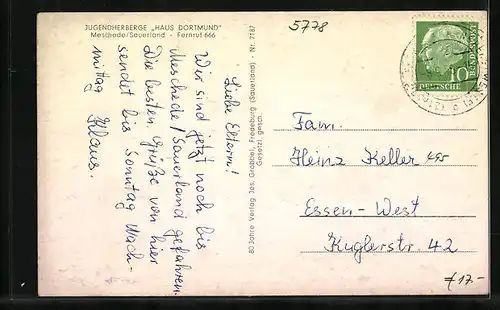 JUGENDHERBERGE „HAUS DORTMUND"
Meschede/Sauerland - Fernruf 666
5778
Liebe Eltern!
Wir sind jetzt noch bis
Meschede/Sauerland gefahren.
Die besten Grüße von hier
sendet bis Sonntag Nach-
mitag Klaus.
80 Jahre Verlag Jos. Grobbel, Fredeburg (Sauerland) - Nr. 7187
Gesetzl. gesch.
10
DEUTSCHE
BUNDESPOST
Fam.
Heinz Keller 495
Essen-West
Kuglerstr. 42
17.-